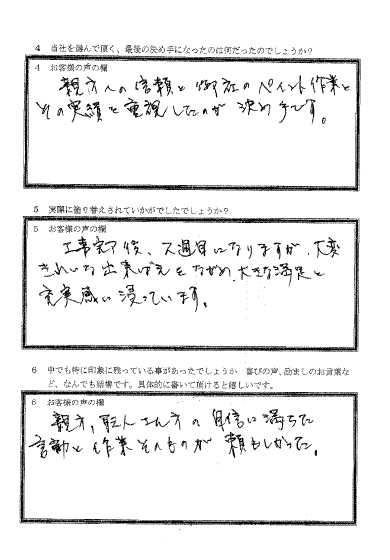 4 当社を選んで頂く、最後の決め手になったのは何だったのでしょうか?
4 お客様の声の欄
親方への信頼と御社のペイント作業と
その実績を重視したのが決め手です。
5 実際に塗り替えされていかがでしたでしょうか?
5 お客様の声の欄
工事完了後、2週目になりますが、大変
きれいな出来ばえをながめ、大きな満足と
充実感に浸っています。
6 中でも特に印象に残っている事があったでしょうか 喜びの声、励ましのお言葉な
ど、なんでも結構です。具体的に書いて頂けると嬉しいです。
6 お客様の声の欄
親方、職人さん方の自信に満ちた
言動と作業そのものが頼もしかった。